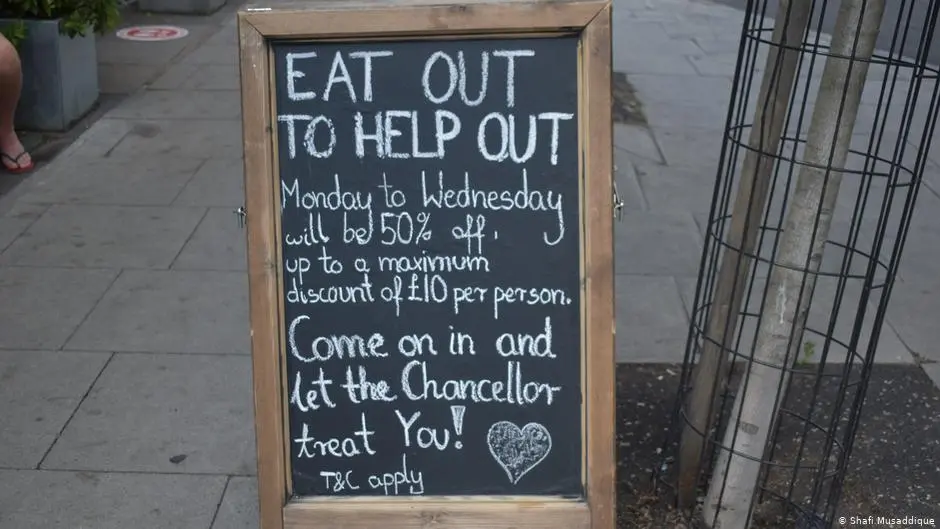 EAT OUT
TO HELP OUT
Monday to Wednesday
will be 50% off.
up to a maximum
discount of £10 per person.
Come on in and
let the Chancellor
treat You!
T&C apply
© Shafi Musaddique